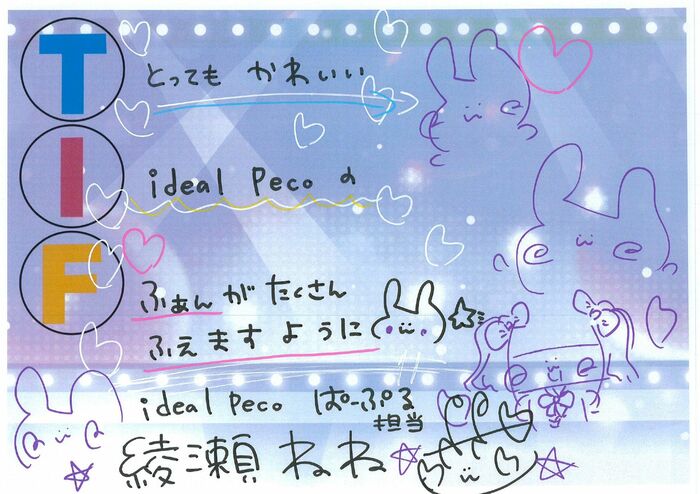 T
とっても かわいい
I
ideal Peco の
F
ふぁんが たくさん
ふえますように
ideal peco ぱーぷる
担当
綾瀬 ねね